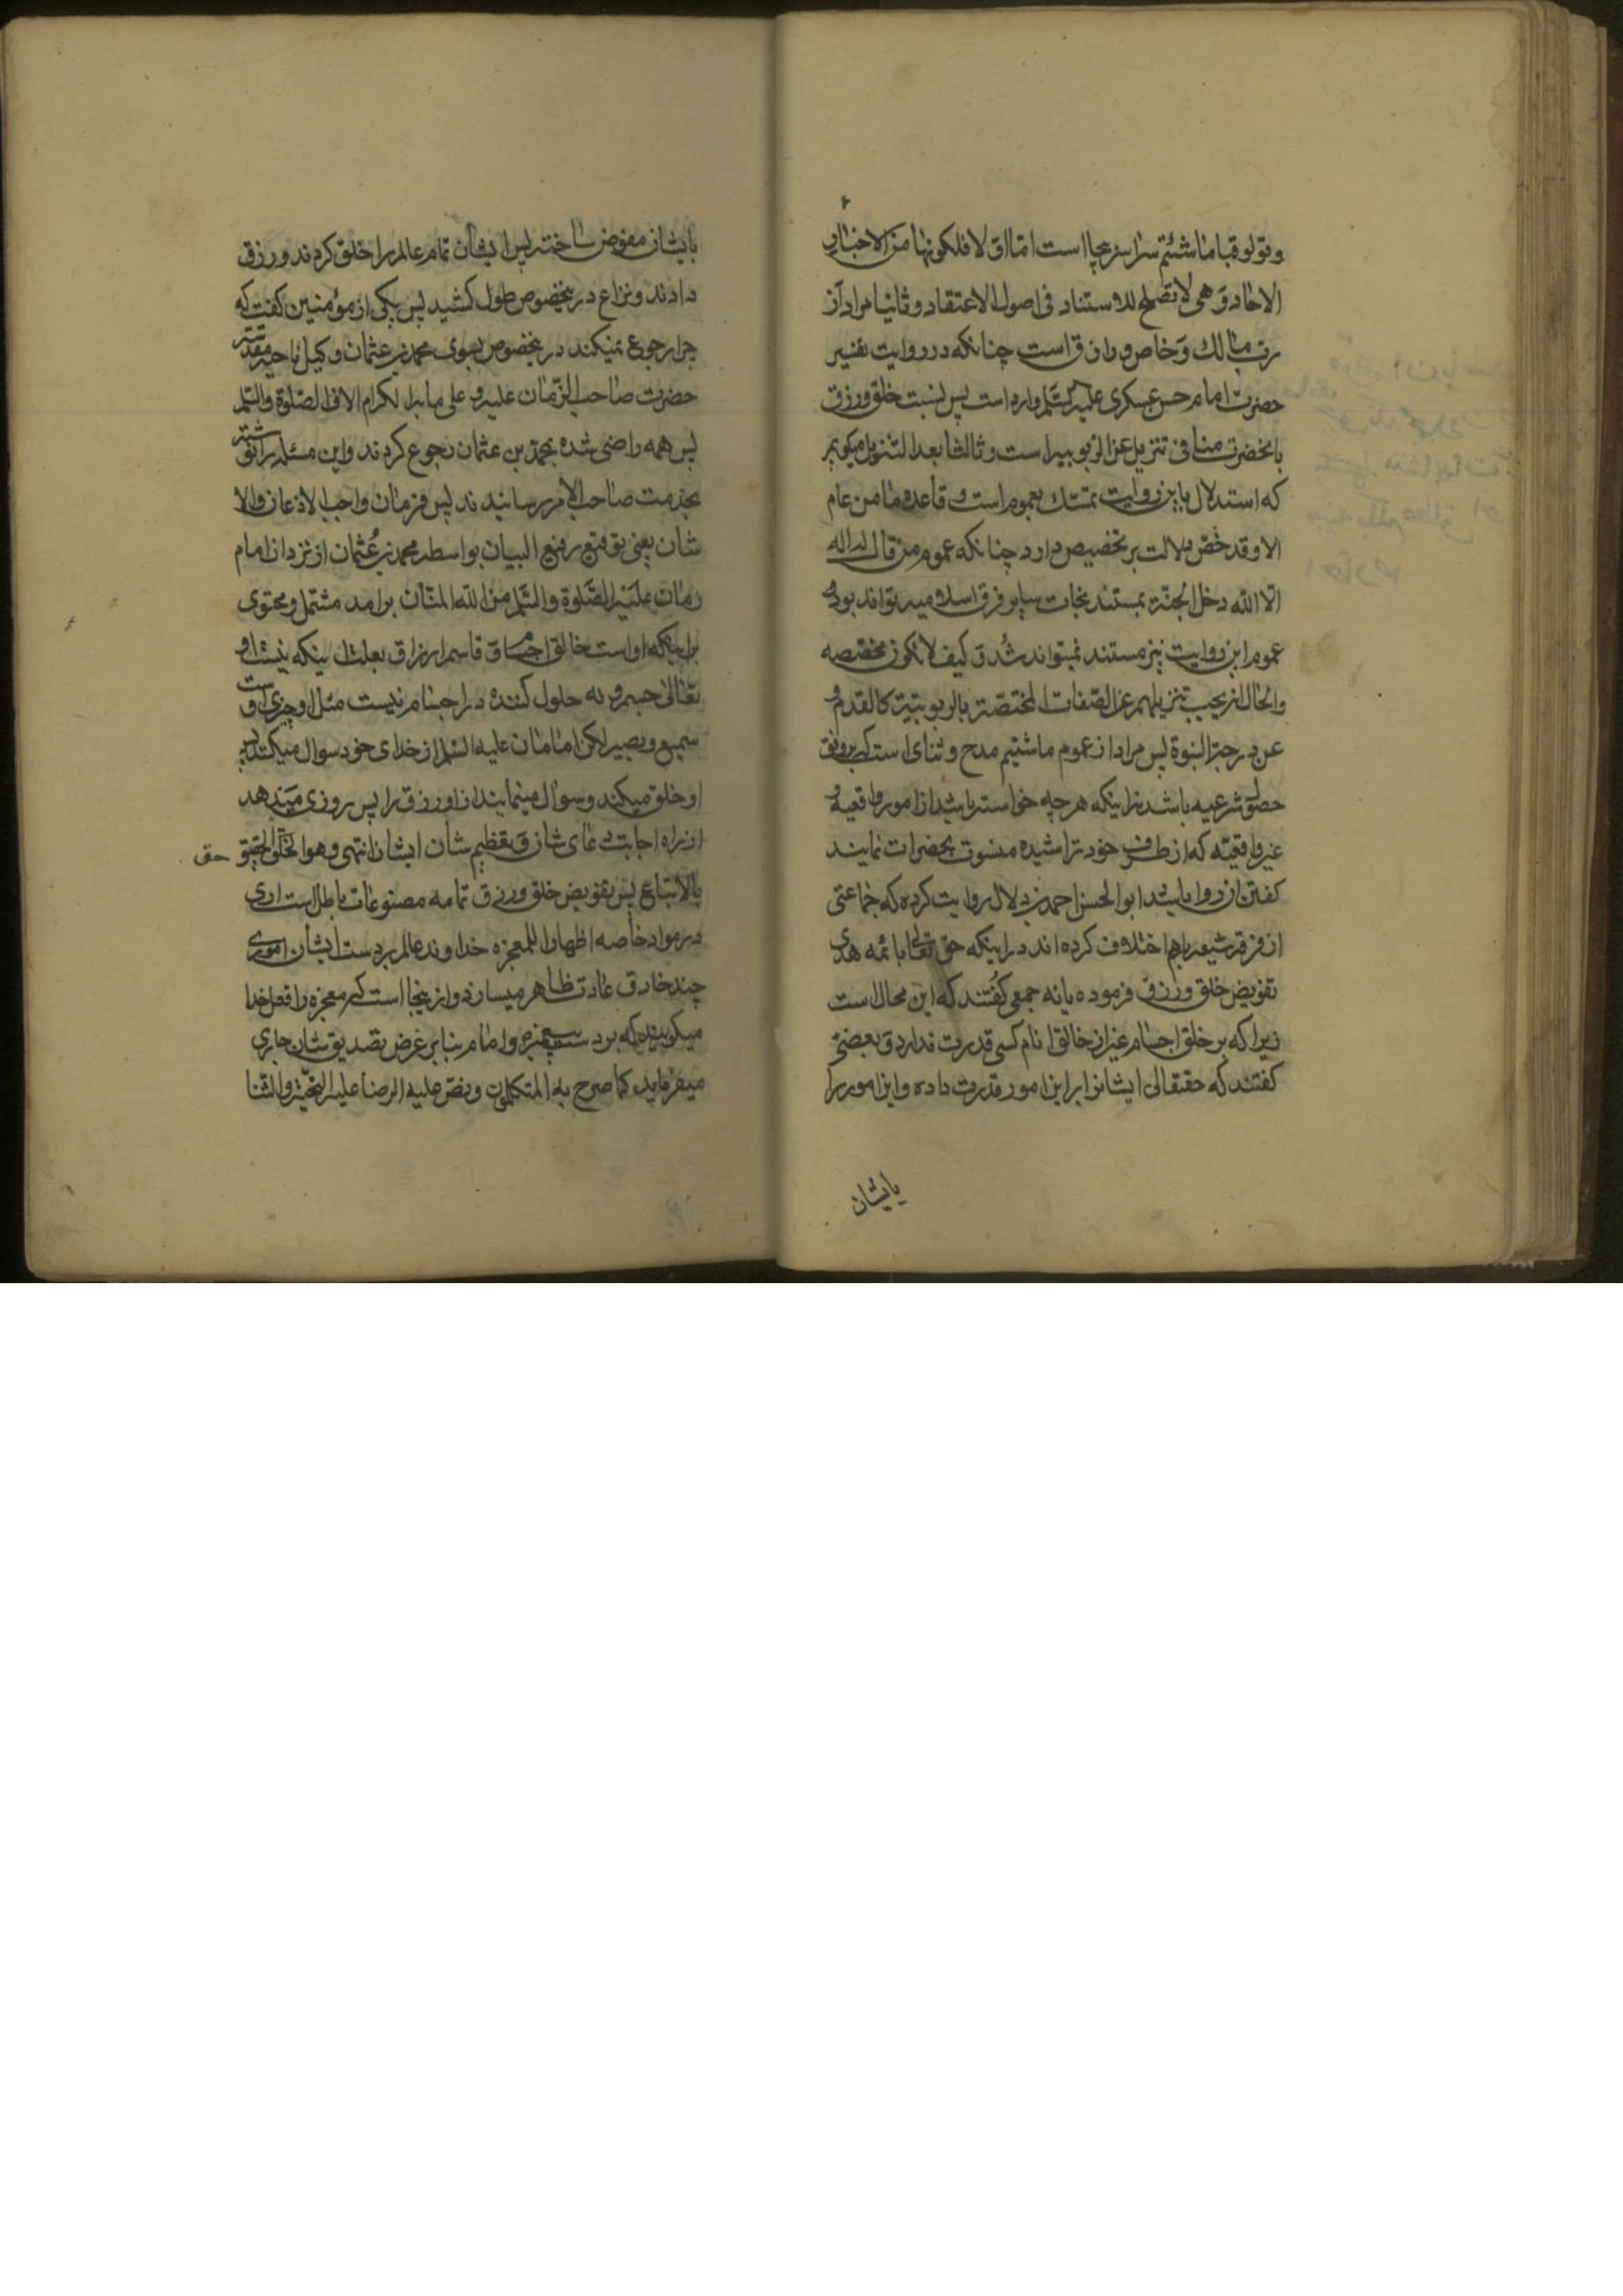 وقولو قباما شئتم سراسر عجابست اما اولا فلكونها من الاخبار
الاحاد وهى لا تصلح للاستناد فى اصول الاعتقاد وثانيا مراد از
رب مالك و خاص و رازق است چنانكه در روايت تفسير
حضرت امام حسن عسكرى عليه السلم وارد است پس نسبت خلق ورزق
بانحضرت منافى تنزيل عن الربوبيه است وثالثا بعد التنزيل ميگويم
كه استدلال باين روايت تمسك بعموم است و قاعده ما من عام
الا وقد خص دلالت بر تخصيص دارد چنانكه عموم من قال لا اله
الا الله دخل الجنة مستند نجات ساير فرق اسلاميه تواند بود
عموم اين روايت نيز مستند نميتواند شد و كيف لا تكون مخصصه
والحال انه يجب تنزيلهم عن الصفات المختصة بالربوبيته كالقدم و
عن درجة النبوة پس مراد از عموم ماشئتم مدح و ثناى است كه بروفق
شرعيه باشد نه اينكه هر چه خواسته باشيد از امور واقعيه و
غير واقعيه كه از طرف خود تراشيده منسوب بحضرات نمايند
گفتن ان روا باشد ابو الحسن احمد بن دلال روايت كرده كه جماعتى
از فرقه شيعه باهم اختلاف كرده اند در اينكه حق تعالى بائمه هدى
تفويض خلق ورزق فرموده يا نه جمعى گفتند كه اين محال است
زيرا كه بر خلق اجسام غير از خالق انام كسى قدرت ندارد و بعضى
گفتند كه حقتعالى ايشانرا بر اين امور قدرت داده واين امور را
بايشان
بايشان مفوض ساخته پس ايشان تمام عالم را خلق كردند ورزق
دادند ونزاع درينخصوص طول كشيد پس يكى از مؤمنين گفت كه
چرا رجوع نميكنند درينخصوص بسوى محمد بن عثمان وكيل ناحيه مقدسه
حضرت صاحب الزمان عليه و على الاف الصلوة والسلم
پس همه راضى شده بمحمد بن عثمان رجوع كردند واين مسئله را نوشته
بخدمت صاحب الامر رسانيدند پس فرمان واجب الاذعان والا
شان يعنى توقيع رفيع البيان بواسطه محمد بن عثمان از نزد ان امام
زمان عليه الصلوة والسلم من الله المنان برامد مشتمل ومحتوى
براينكه او است خالق اجسام و قاسم ارزاق بعلت اينكه نيست او
تعالى جسم و نه حلول كننده در اجسام نيست مثل او چيزى و
سميع وبصير لكن امامان عليه السلم از خداى خود سوال ميكنند پس
او خلق ميكند وسوال مينمايند از او رزق را پس روزى ميدهد
از راه اجابت دعاى شان و تعظيم شان ايشان انتهى وهو الحق الحقيق
حق
بالاتباع پس تفويض خلق ورزق تمامه مصنوعات باطل است ارى
در مواد خاصه اظهارا للمعجزه خداوند عالم بر دست ايشان امورى
چند خارق عادت ظاهر ميسازد واز ينجا است كه معجزه را فعل خدا
ميگويند كه بر دست پيغمبر و امام بنا بر غرض تصديق شان جارى
ميفرمايد كما صرح به المتكلمون ونص عليه الرضا عليه التحية والثنا